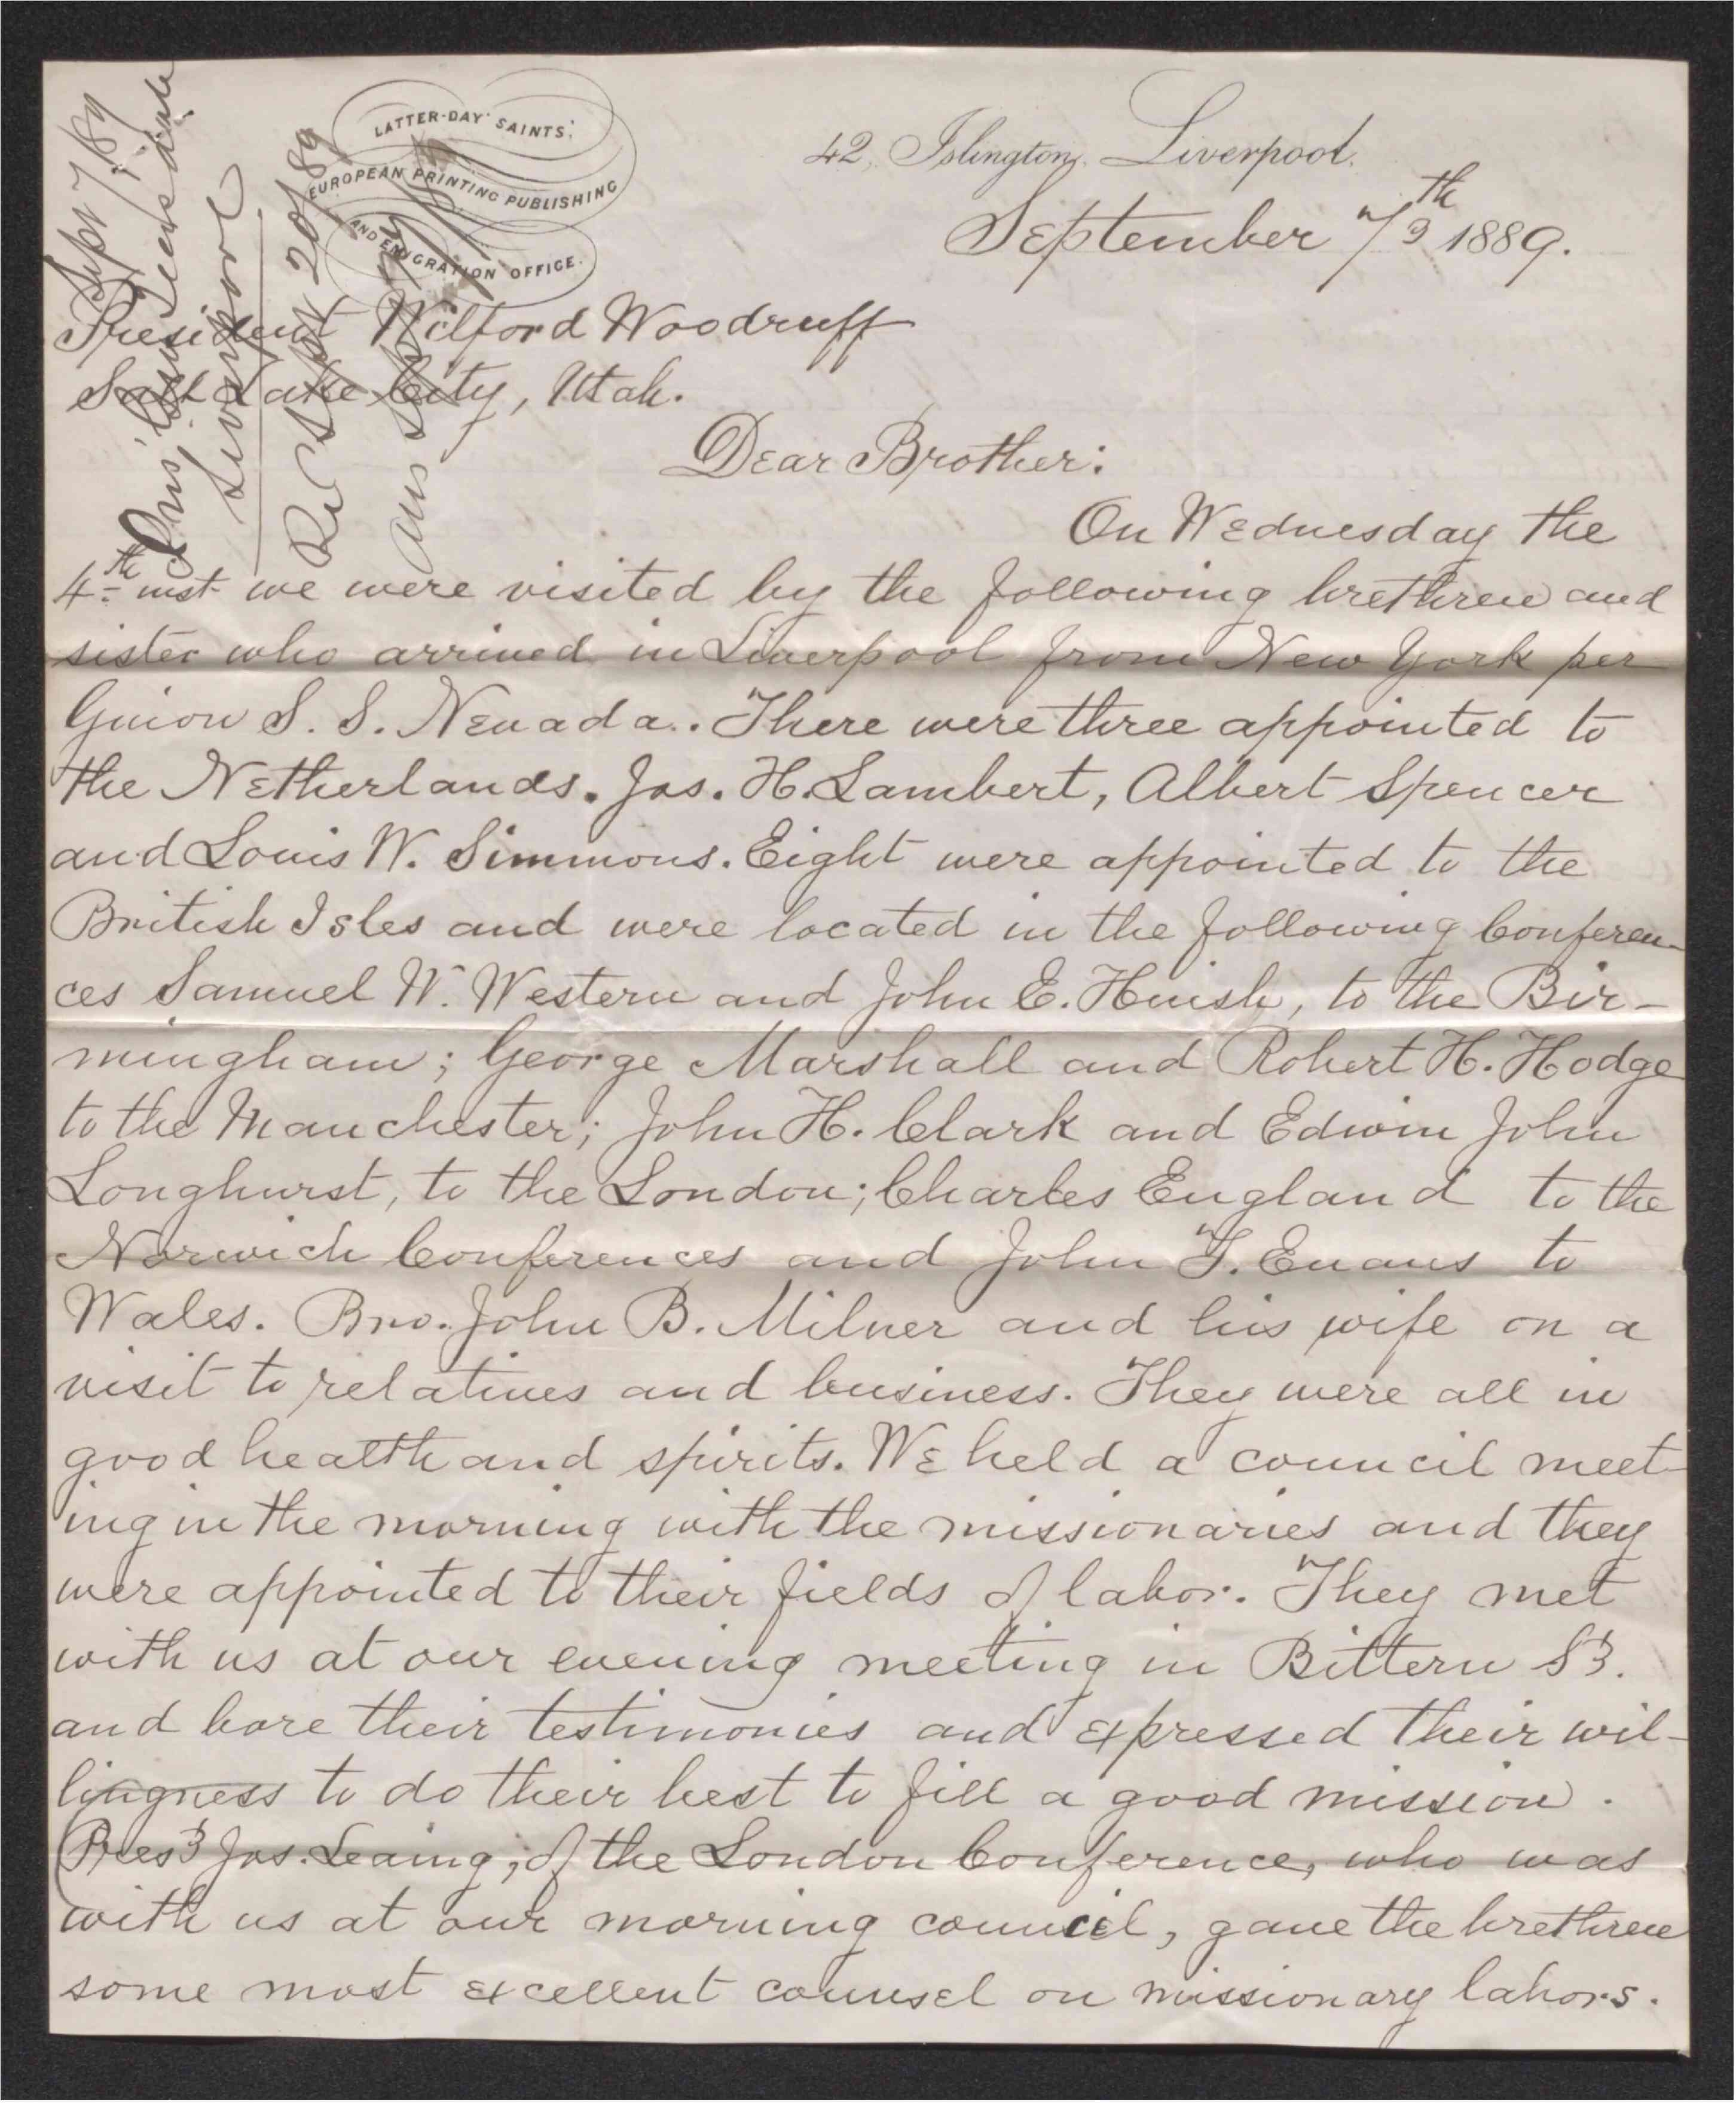 LATTER-DAY SAINTS'
EUROPEAN PRINTING PUBLISHING
AND EMIGRATION OFFICE.
42, Islington, Liverpool.
September 7th 1889.
Sept 7/89
Liverpool
Rec Sept 20/89
ans Sept
President Wilford Woodruff
Salt Lake City, Utah.
Dear Brother:
On Wednesday the
4th inst we were visited by the following brethren and
sister who arrived in Liverpool from New York per
Guion S. S. Nevada. There were three appointed to
the Netherlands. Jas. H. Lambert, Albert Spencer
and Louis W. Simmons. Eight were appointed to the
British Isles and were located in the following Conferen-
ces Samuel W. Western and John E. Huish, to the Bir-
mingham; George Marshall and Robert H. Hodge
to the Manchester; John H. Clark and Edwin John
Longhurst, to the London; Charles England to the
Norwich Conferences and John T. Evans to
Wales. Bro. John B. Milner and his wife on a
visit to relatives and business. They were all in
good health and spirits. We held a council meet-
ing in the morning with the missionaries and they
were appointed to their fields of labor. They met
with us at our evening meeting in Bittern St.
and bore their testimonies and expressed their wil-
lingness to do their best to fill a good mission.
Prest Jas. Leaing, of the London Conference, who was
with us at our morning council, gave the brethren
some most excellent counsel on missionary labors.